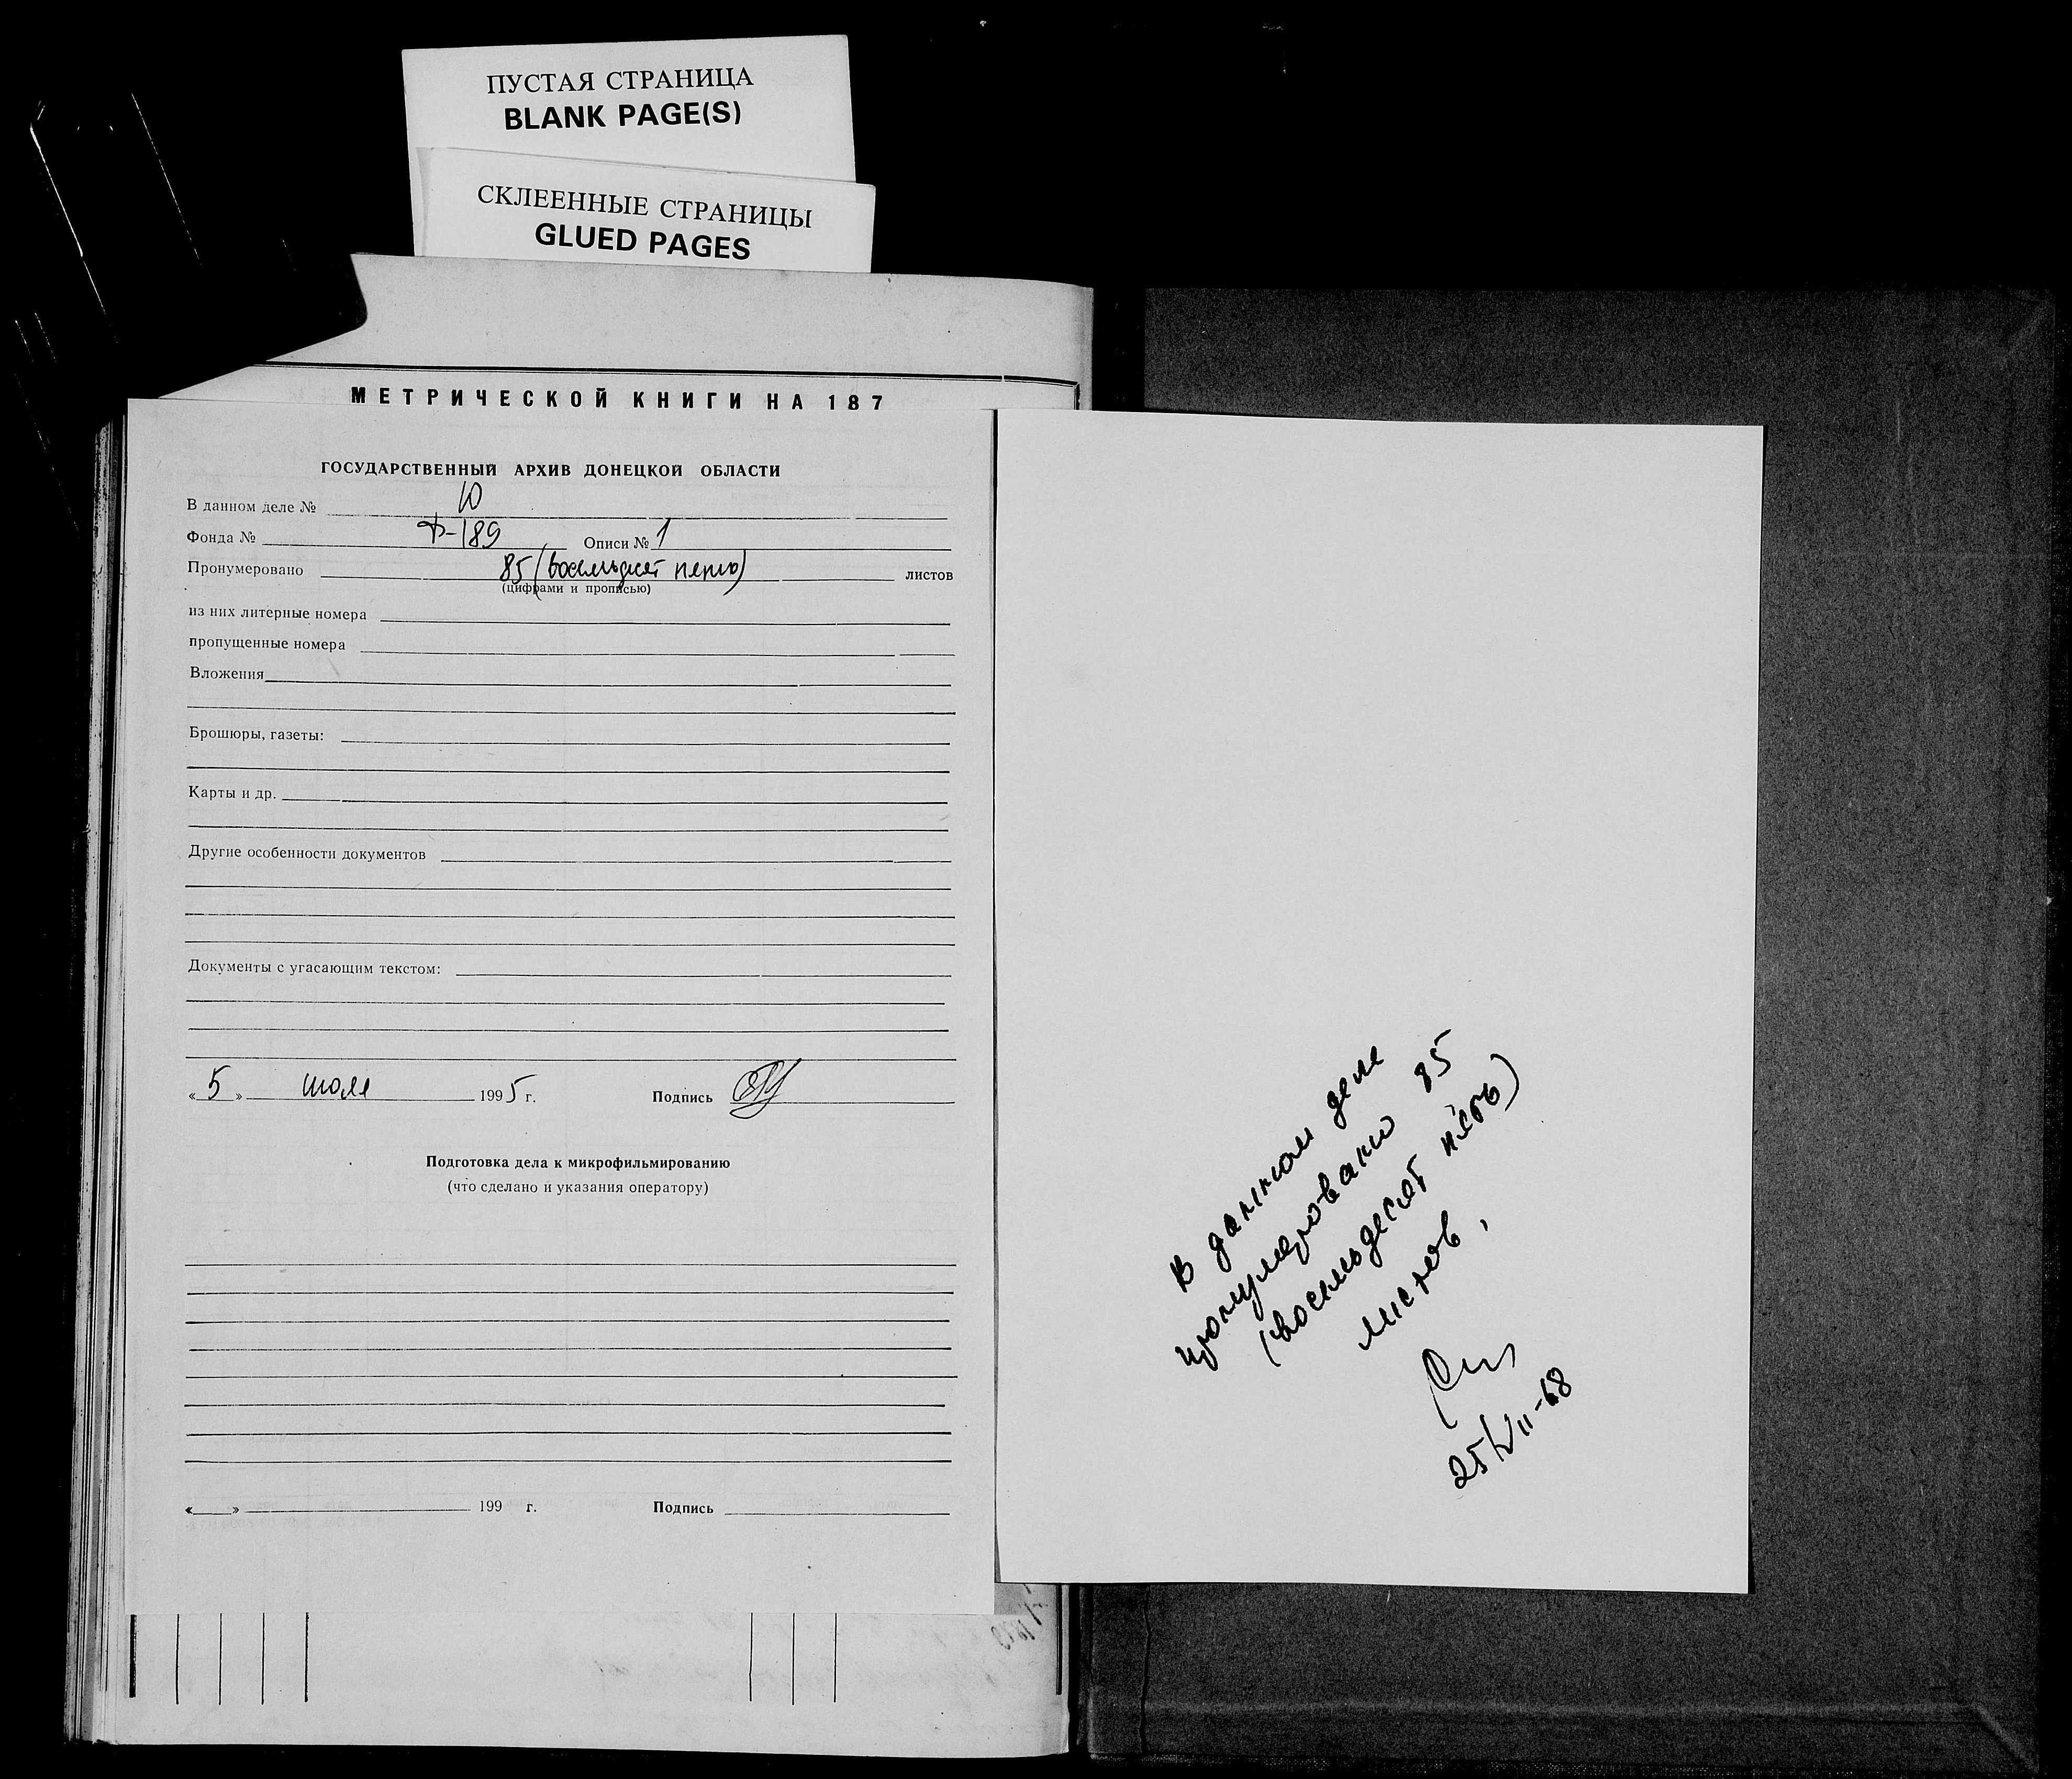 ПУСТАЯ СТРАНИЦА
BLANK PAGE(S)
СКЛЕЕННЫЕ СТРАНИЦЫ
GLUED PAGES
МЕТРИЧЕСКОЙ КНИГИ НА 187
ГОСУДАРСТВЕННЫЙ АРХИВ ДОНЕЦКОЙ ОБЛАСТИ
В данном деле № 10
Фонда № Ф-189 Описи № 1
Пронумеровано 85 (восемьдесят пять) листов
(цифрами и прописью)
из них литерные номера
пропущенные номера
Вложения
Брошюры, газеты:
Карты и др.
Другие особенности документов
Документы с угасающим текстом:
«5» июля 1995 г. Подпись
Подготовка дела к микрофильмированию
(что сделано и указания оператору)
«    » 199  г. Подпись
В данном деле
пронумеровано 85
(восемьдесят пять)
листов.
25/VII-68